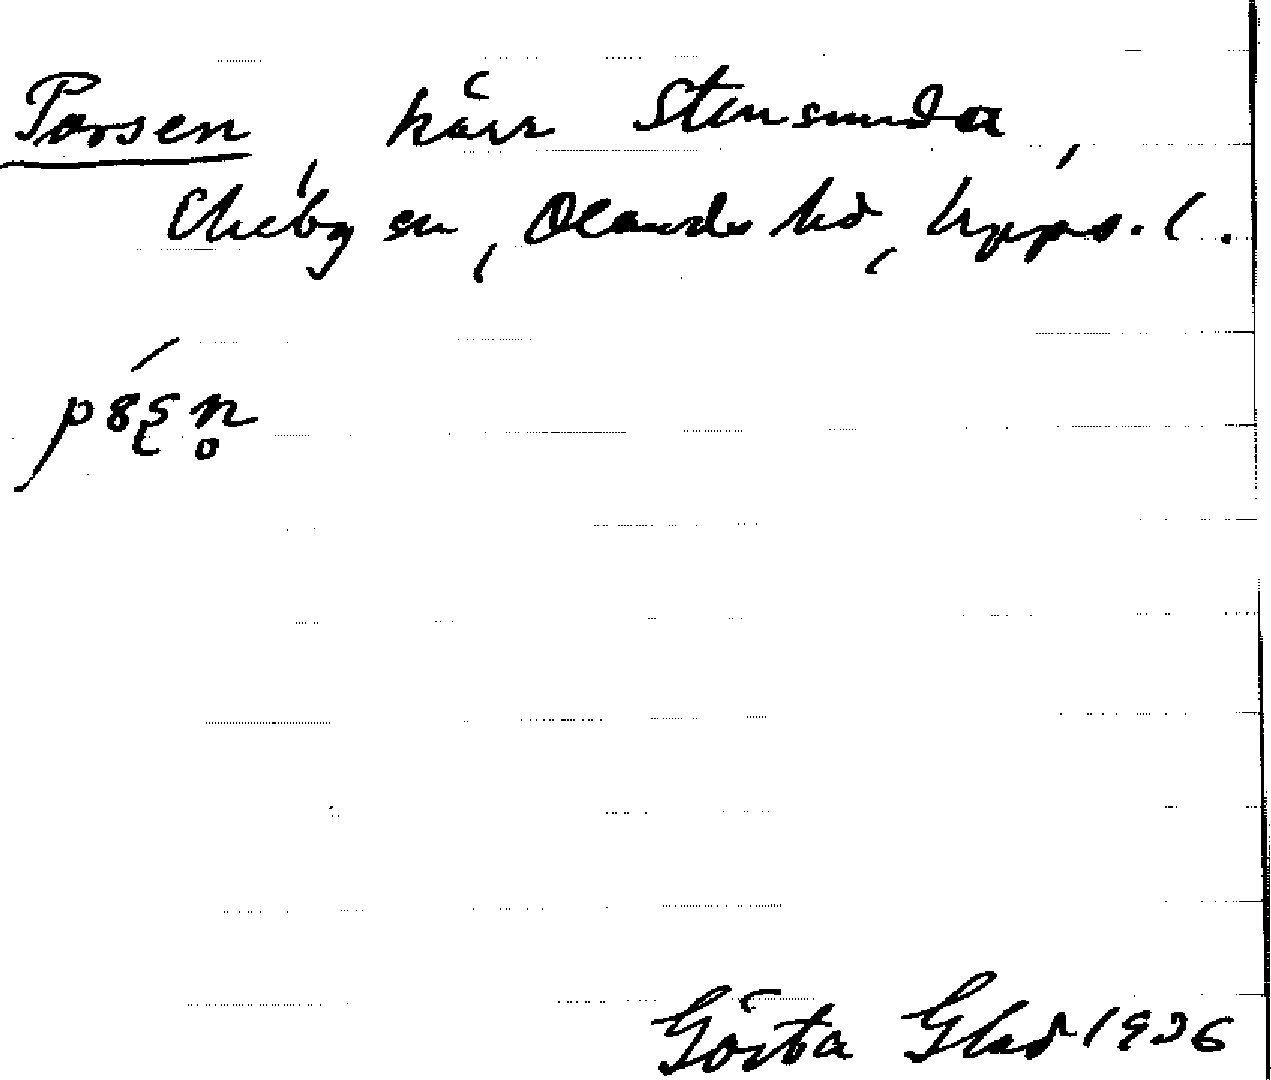 Porsen, kärr Stensunda,
Ekeby sn, Olands hd, Upps. l.
Gösta Glad 1936